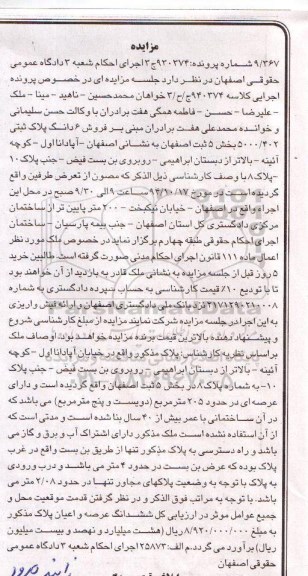 مزایده
۹/۳۶۷ شماره پرونده: ۹۲۰۲۷۴ج۳ اجرای احکام شعبه ۳ دادگاه عمومی
حقوقی اصفهان در نظر دارد جلسه مزایده ای در خصوص پرونده
اجرایی کلاسه ۹۴۰۳۷۴ج/ح/۳ خواهان محمدحسین - ناهید - مینا - ملک
- علیرضا - حسن - فاطمه همگی هفت برادران با وکالت حسن سلیمانی
و خوانده محمدعلی هفت برادران مبنی بر فروش ۶ دانگ پلاک ثبتی
۵۰۰۰/۴۰۲ بخش ۵ ثبت اصفهان به نشانی اصفهان - آپادانا اول - کوچه
آئینه - بالاتر از دبستان ابراهیمی - روبروی بن بست فیض - جنب پلاک ۱۰
- پلاک ۸ با وصف کارشناسی ذیل الذکر که مصون از تعرض طرفین واقع
گردیده است در مورخ ۹۴/۱۰/۱۷ ساعت ۹ الی ۹/۳۰ صبح در محل این
اجرا واقع در اصفهان - خیابان نیکبخت - ۲۰۰ متر پایین تر از ساختمان
مرکزی دادگستری کل استان اصفهان - جنب بیمه پارسیان - ساختمان
اجرای احکام حقوقی طبقه چهارم برگزار نماید در خصوص ملک مورد نظر
اعمال ماده ۱۱۱ قانون اجرای احکام مدنی صورت گرفته است طالبین خرید
۵ روز قبل از جلسه مزایده به نشانی ملک قادر به بازدید از آن خواهند بود
تا با تودیع ۱۰٪ قیمت کارشناسی به حساب سپرده دادگستری به شماره
۲۱۷۱۲۹۰۲۱۰۰۸ نزد بانک ملی دادگستری اصفهان و ارائه فیش واریزی
به این اجرا در جلسه مزایده شرکت نمایند مزایده از مبلغ کارشناسی شروع
و پیشنهاد دهنده بالاترین قیمت برنده مزایده خواهد بود. اوصاف ملک
براساس نظریه کارشناس: پلاک مذکور واقع در خیابان آپادانا اول - کوچه
آئینه - بالاتر از دبستان ابراهیمی - روبروی بن بست فیض - جنب پلاک
۱۰- به شماره پلاک ۸ در بخش ۵ ثبت اصفهان واقع گردیده است و دارای
عرصه ای در حدود ۲۰۵ مترمربع (دویست و پنج مترمربع) می باشد که
در آن ساختمانی با عمر بیش از ۴۰ سال بنا شده است و مدتی است که
از آن استفاده نشده است ملک مذکور دارای اشتراک آب و برق و گاز می
باشد و راه دسترسی به پلاک مذکور تنها از طریق بن بست واقع در غرب
پلاک بوده که عرض بن بست در حدود ۴ متر می باشد و درب ورودی
به پلاک با توجه به وضعیت پلاکهای مجاور تنها در حدود ۲/۰۸ متر می
باشد. با توجه به مراتب فوق الذکر و در نظر گرفتن قدمت موقعیت محل و
جمیع عوامل موثر در ارزیابی کل ششدانگ عرصه و اعیان پلاک مذکور
به مبلغ ۸/۹۲۰/۰۰۰/۰۰۰ ریال (هشت میلیارد و نهصد و بیست میلیون
ریال) برآورد می گردد.م الف:۲۵۸۷۳ اجرای احکام شعبه ۳ دادگاه عمومی
حقوقی اصفهان